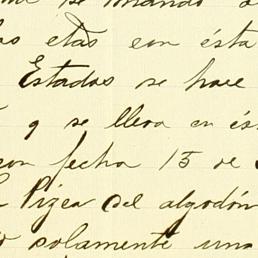 etas con ésta
Estados se hace
y se lleva en és
con fecha 15 de
Pizca del algodón
solamente una